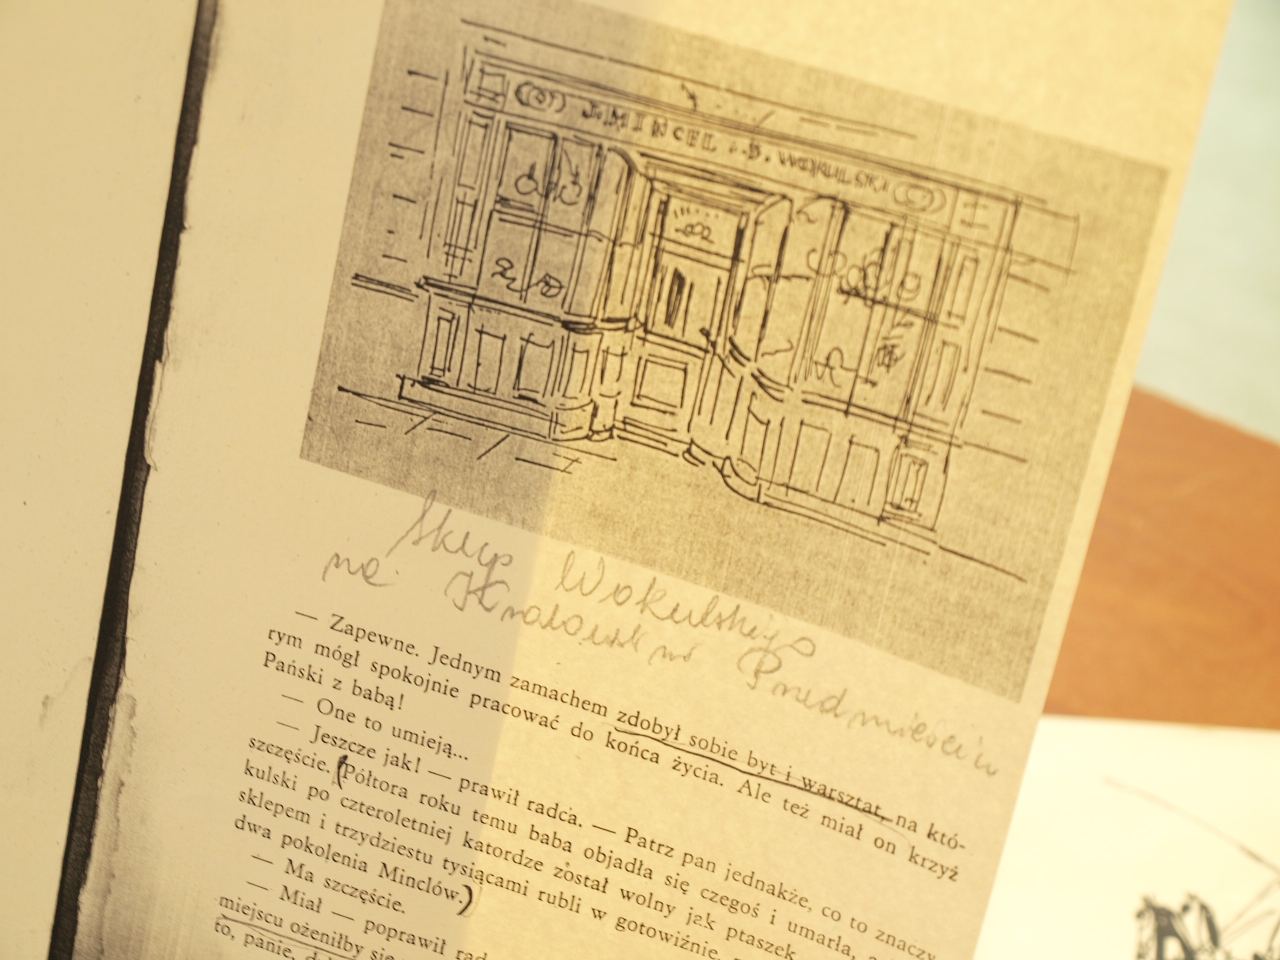 J. MINCEL i S. WOKULSKI
Sklep Wokulskiego
na Krakowskim Przedmieściu
— Zapewne. Jednym zamachem zdobył sobie byt i warsztat, na któ-
rym mógł spokojnie pracować do końca życia. Ale też miał on krzyż
Pański z babą!
— One to umieją...
— Jeszcze jak! — prawił radca. — Patrz pan jednakże, co to znaczy
szczęście. (Półtora roku temu baba objadła się czegoś i umarła, a
kulski po czteroletniej katordze został wolny jak ptaszek
sklepem i trzydziestu tysiącami rubli w gotowiźnie,
dwa pokolenia Minclów.)
— Ma szczęście.
— Miał — poprawił
miejscu ożeniłby się
to, panie,